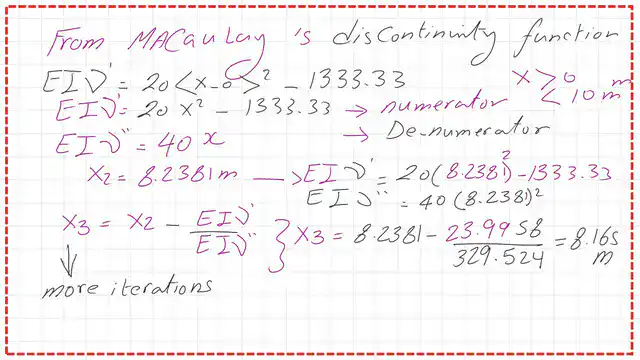 From MACaulay's discontinuity function
EIν' = 20<x-0>² - 1333.33
x > 0 m
< 10 m
EIν' = 20 x² - 1333.33 → numerator
EIν'' = 40 x → De-numerator
x2 = 8.2381 m → EIν' = 20(8.2381)² - 1333.33
EIν'' = 40 (8.2381)²
x3 = x2 - EIν' / EIν'' } x3 = 8.2381 - 23.9958 / 329.524 = 8.165 m
↓
more iterations